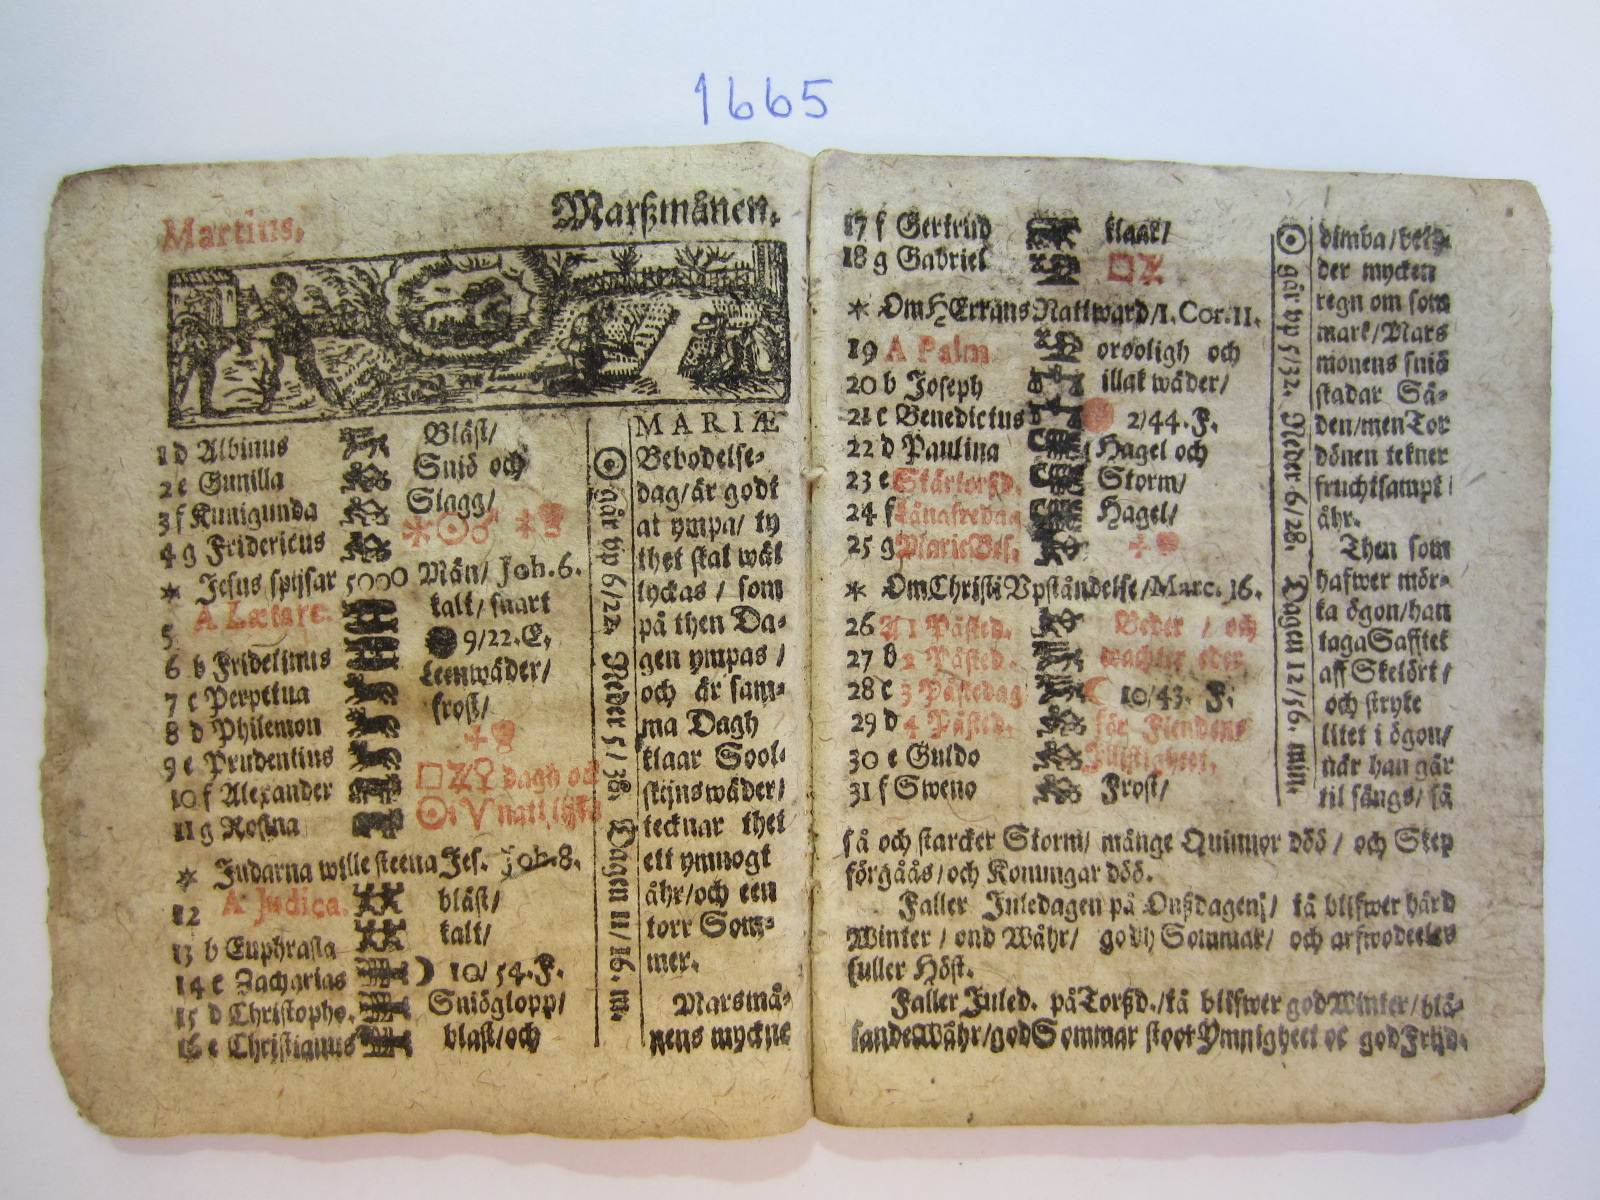 1665
Martius,
Marßmånen.
1 d Albinus Bläst/
2 e Gunilla Sniö och
3 f Kunigunda Slagg/
4 g Fridericus
* Jesus spijsar 5000 Män/ Joh. 6.
5 A Lætare. kalt/ snart
6 b Fridelinus 9/22. E.
7 c Perpetua Leenwäder/
8 d Philemon frost/
9 e Prudentius
10 f Alexander □♃♀ dagh och
11 g Rosina ☉i♈ natt lijka
* Judarna wille steena Jes. Joh. 8.
12 A Judica. bläst/
13 b Euphrasia kalt/
14 c Zacharias ☽ 10/54. F.
15 d Christopho. Sniöglopp/
16 e Christianus blåst/och
☉ går vp 6/22. Neder 5/38. Dagen 11/16. m.
MARIÆ
Bebodelse-
dag/är godt
at ympa/ ty
thet skal wäl
lyckas / som
på then Da-
gen ympas /
och är sam-
ma Dagh
klaar Sool-
skijns wäder/
tecknar thet
ett ymnogt
åhr/och een
torr Som-
mer.
Marsmå-
nens myckne
17 f Gertrud klaart/
18 g Gabriel □♃
* Om HErrans Nattward/1. Cor. 11.
19 A Palm orooligh och
20 b Joseph illakt wäder/
21 c Benedictus 2/44. F.
22 d Paulina Hagel och
23 e Skärtorßd. Storm/
24 f Långfredag Hagel/
25 g Marie Beb.
* Om Christi Vpståndelse/Marc. 16.
26 A 1 Påsted. Beder / och
27 b 2 Påsted. wachter eder
28 c 3 Påstedag ☾ 10/43. F.
29 d 4 Påsted. för Fiendens
30 e Guldo Illistigheet.
31 f Sweno Frost/
☉ går vp 5/32. Neder 6/28. Dagen 12/56. min.
dimba/
der mycken
regn om som
mark/Mars
monens sniö
skadar Sä-
den/men Tor
dönen tekner
fruchtsampt
åhr.
Then som
hafwer mör-
ka ögon/han
taga Safftet
aff Skelört/
och stryke
litet i ögon/
när han går
til sängs/ så
så och starcker Storm/ månge Quinnor döö / och Skep
förgåås/och Konungar döö.
Faller Juledagen på Onßdagen/ tå blifwer hård
Winter / ond Wåhr/ godh Sommar/ och arfwodeeles
fuller Höst.
Faller Juled. på Torßd./tå blifwer god Winter/ blå-
sande Wåhr/god Sommar stoor Ymnigheet oc god Frijd.